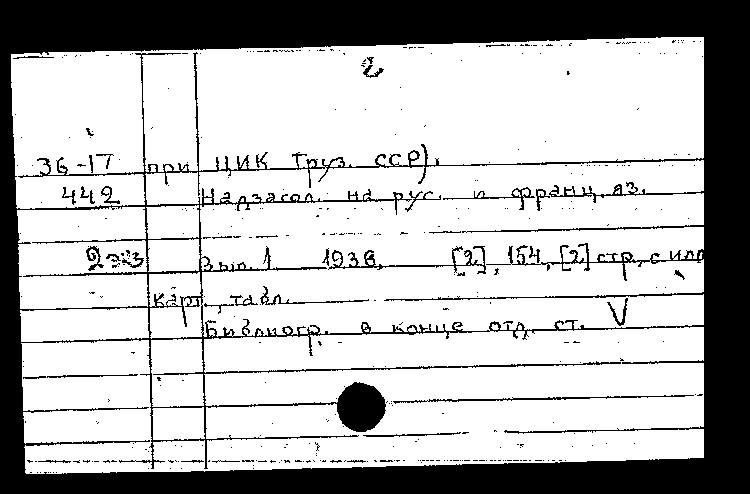 2
36-17 при ЦИК Груз. ССР).
442 Надзагол. на рус. и франц. яз.
2 экз Вып. 1 1936. [2], 154, [2] стр., с илл
карт., табл.
Библиогр. в конце отд. ст. V